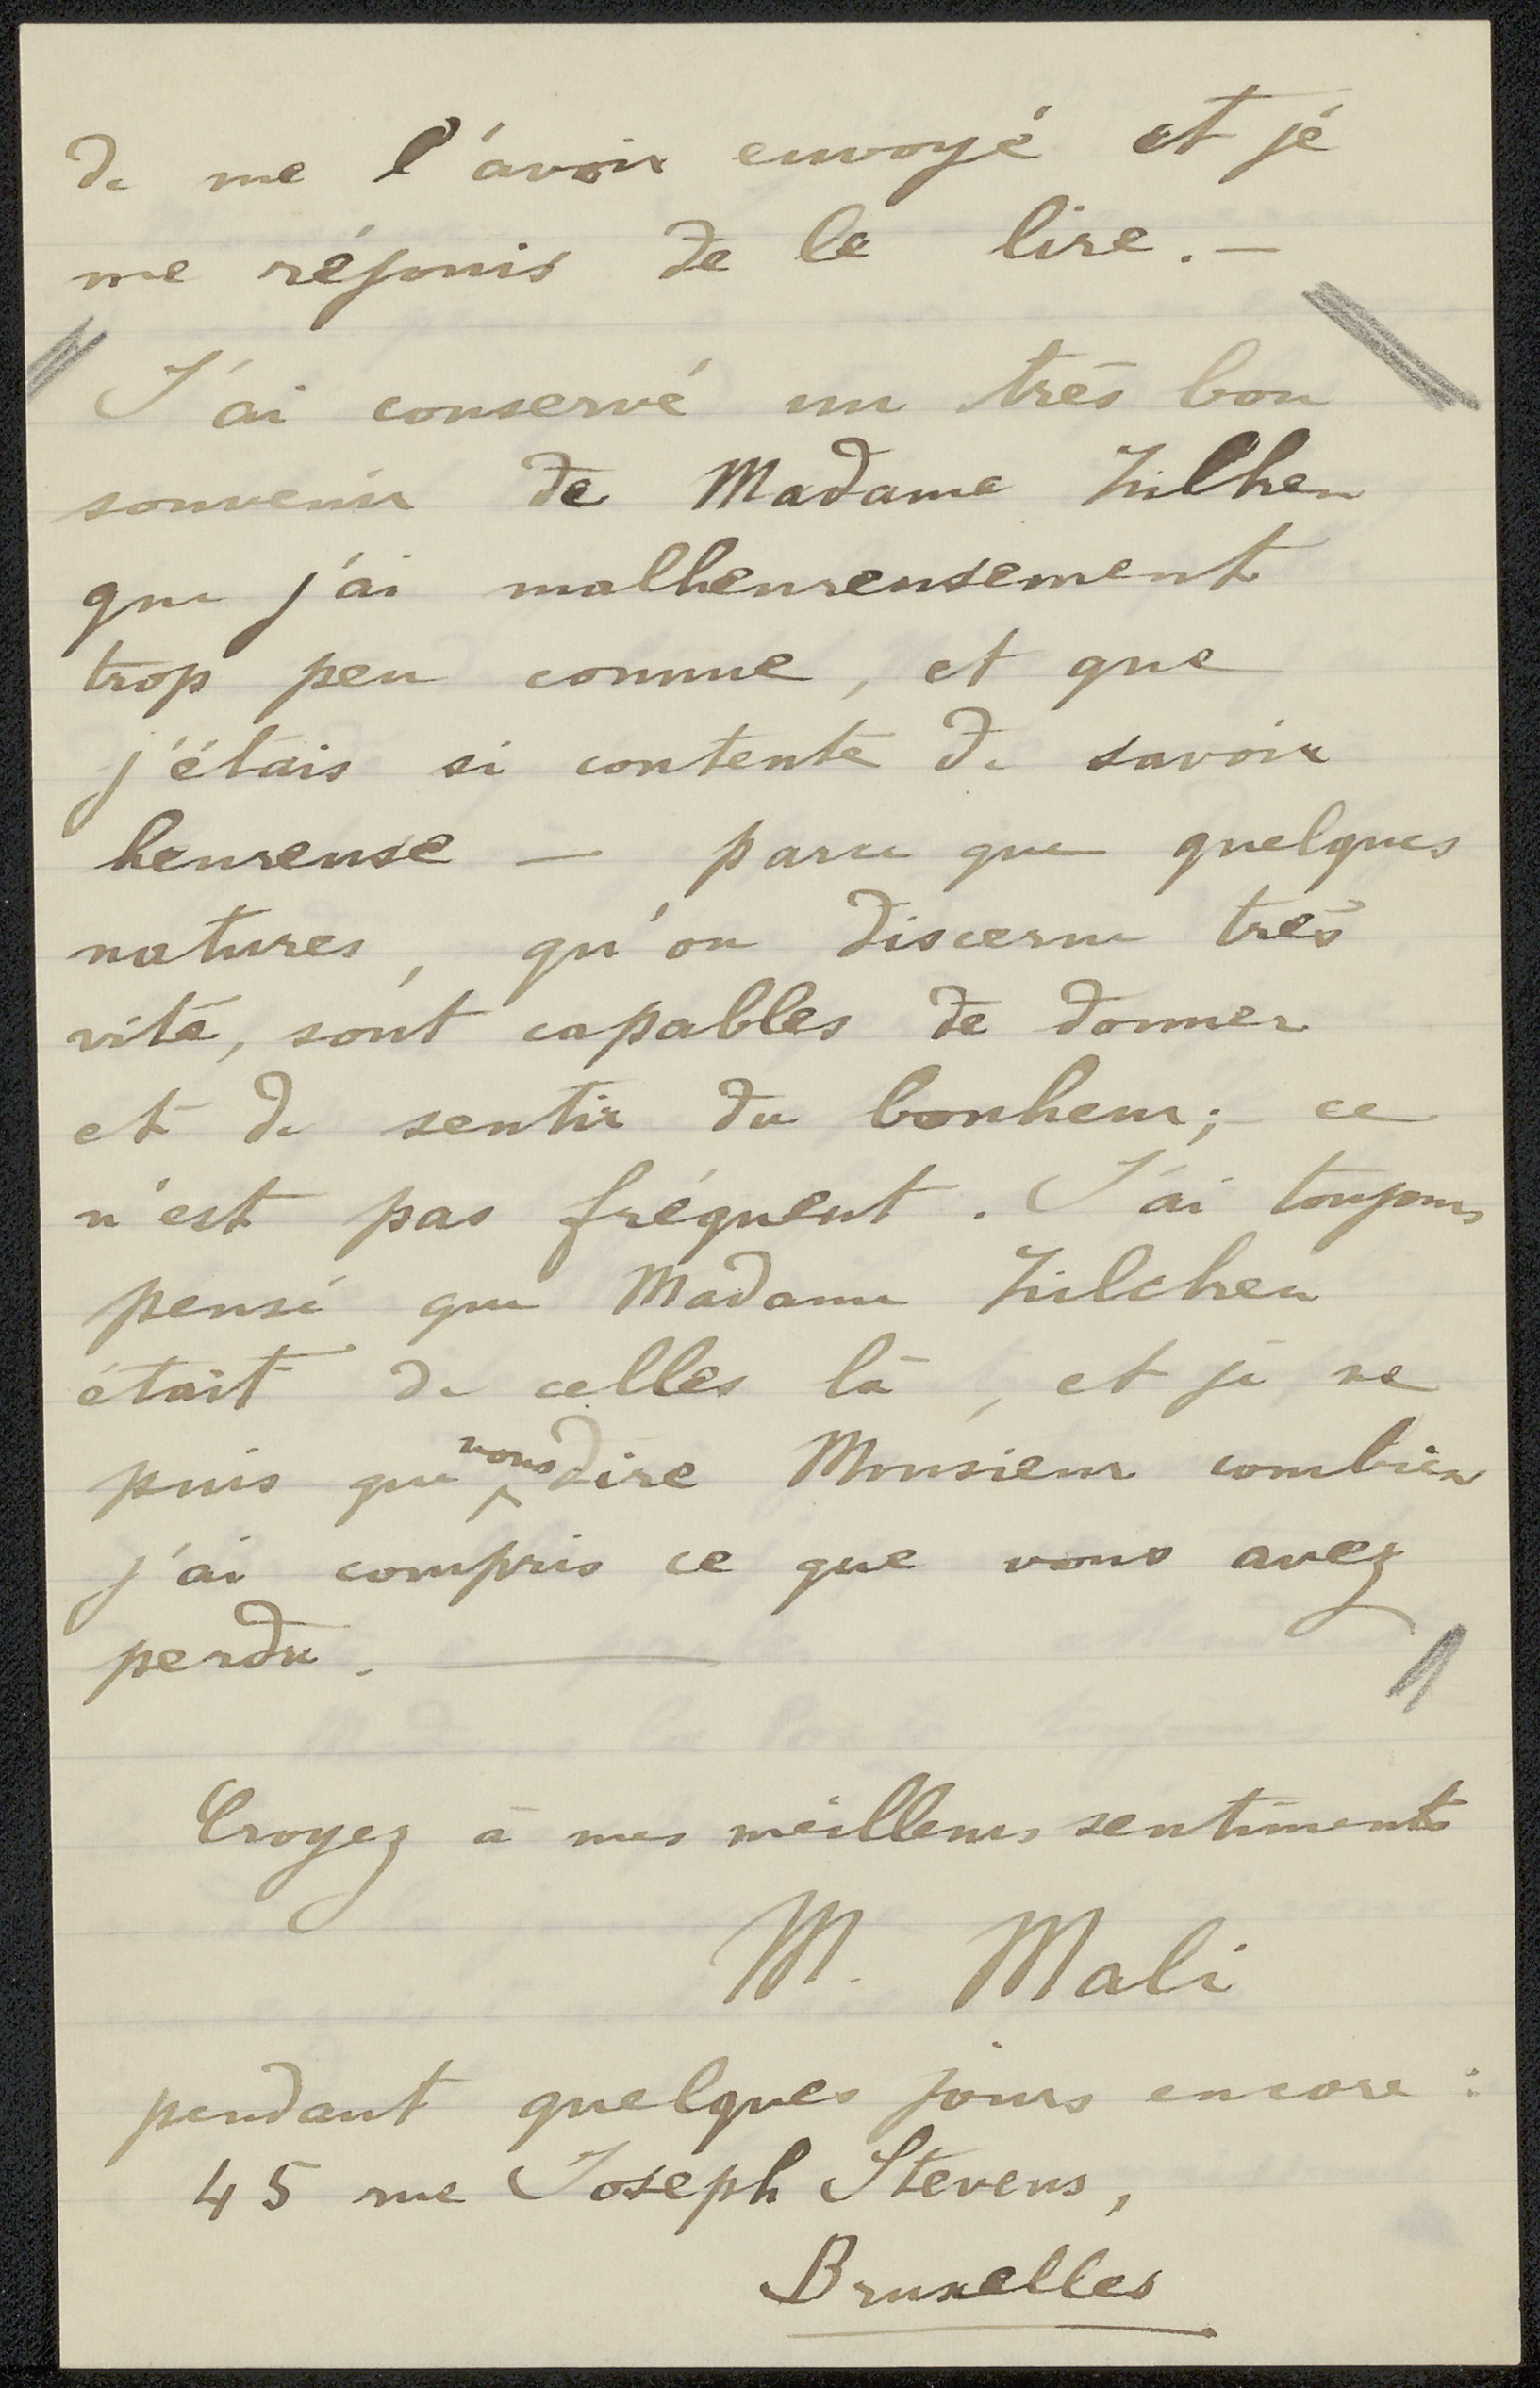 de me l'avoir envoyé et je
me réjouis de le lire. —
J'ai conservé un très bon
souvenir de Madame Zilken
que j'ai malheureusement
trop peu connue, et que
j'étais si contente de savoir
heureuse — parce que quelques
natures, qu'on discerne très
vite, sont capables de donner
et de sentir du bonheur; ce
n'est pas fréquent. J'ai toujours
pensé que Madame Zilcken
était de celles là, et je ne
puis que vous dire Monsieur combien
j'ai compris ce que vous avez
perdu. —
Croyez à mes meilleurs sentiments
M. Mali
pendant quelques jours encore :
45 rue Joseph Stevens,
Bruxelles